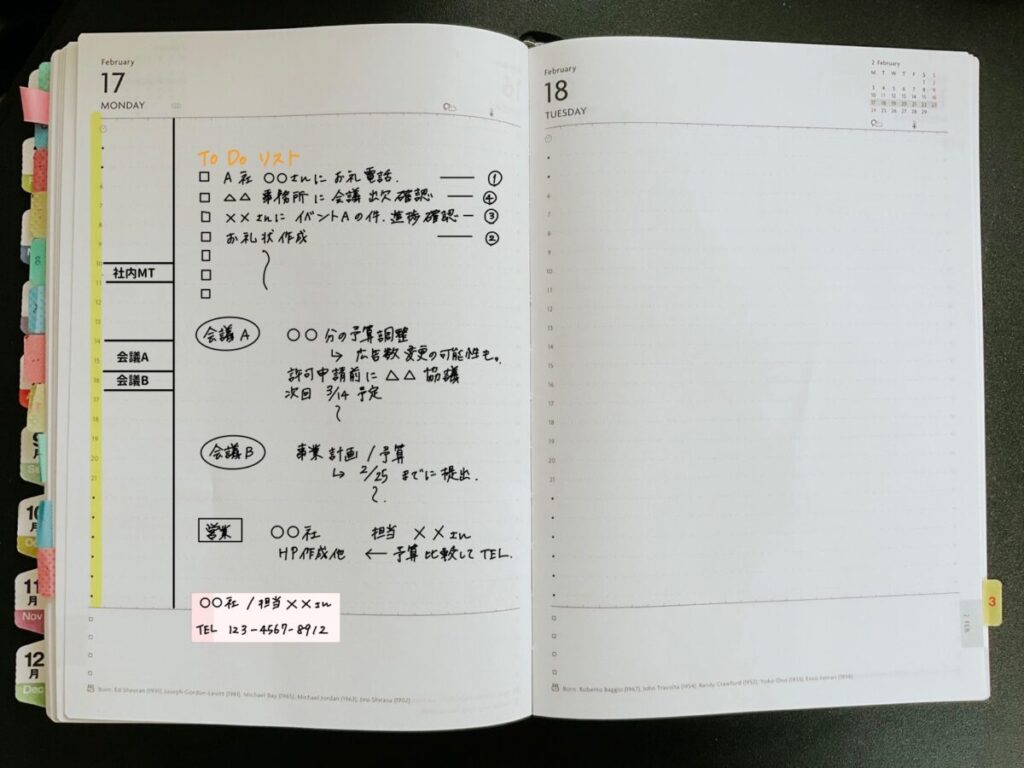 February
17
MONDAY
To Do リスト
A社 〇〇さんに お礼電話. ①
△△ 事務所に会議出欠確認 ④
××さんに イベントAの件. 進捗確認 ③
お礼状作成 ②
社内MT
会議A
会議B
会議A 〇〇分の予算調整
↳ 広告数変更の可能性も。
許可申請前に △△ 協議
次回 3/14 予定
会議B 事業計画/予算
↳ 2/25 までに提出.
営業 〇〇社 担当 ××さん
HP作成他 ← 予算比較してTEL.
〇〇社/担当××さん
TEL 123-4567-8912
Born: Ed Sheeran (1991), Joseph Gordon-Levitt (1981), Michael Bay (1965), Michael Jordan (1963), Jiro Shirasu (1902)
February
18
TUESDAY
2 February
M T W T F S S
1 2
3 4 5 6 7 8 9
10 11 12 13 14 15 16
17 18 19 20 21 22 23
24 25 26 27 28 29
Born: Roberto Baggio (1967), John Travolta (1954), Randy Crawford (1952), Yoko Ono (1933), Enzo Ferrari (1898)
3
2 FEB
9
月
10
月
11
月
Nov
12
月
Dec